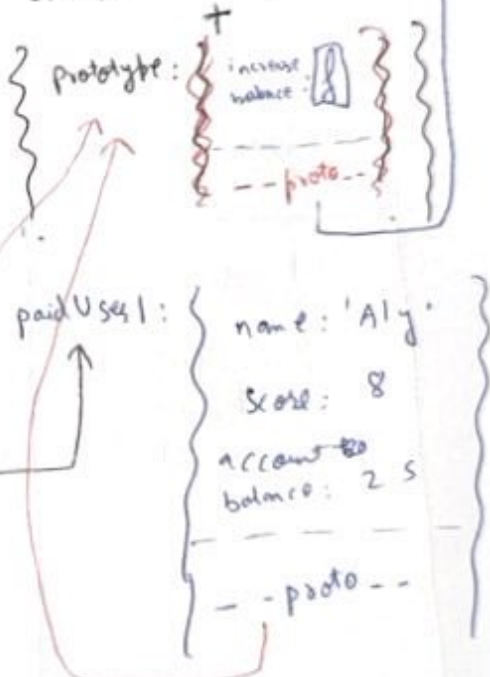 +
prototype:
increase
balance: f
--proto--
paidUser1:
name: 'Aly'
score: 8
account
balance: 25
--proto--